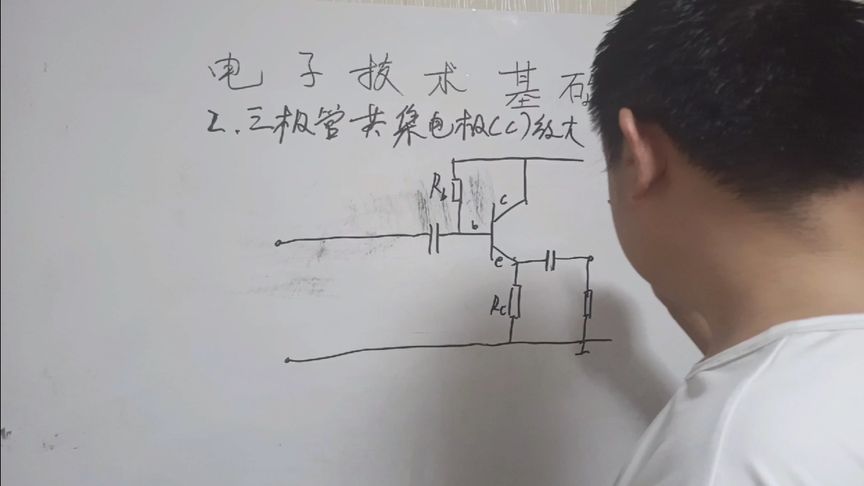 电子技术基础
2.三极管共集电极(CC)放大
Rb
c
b
e
Rc